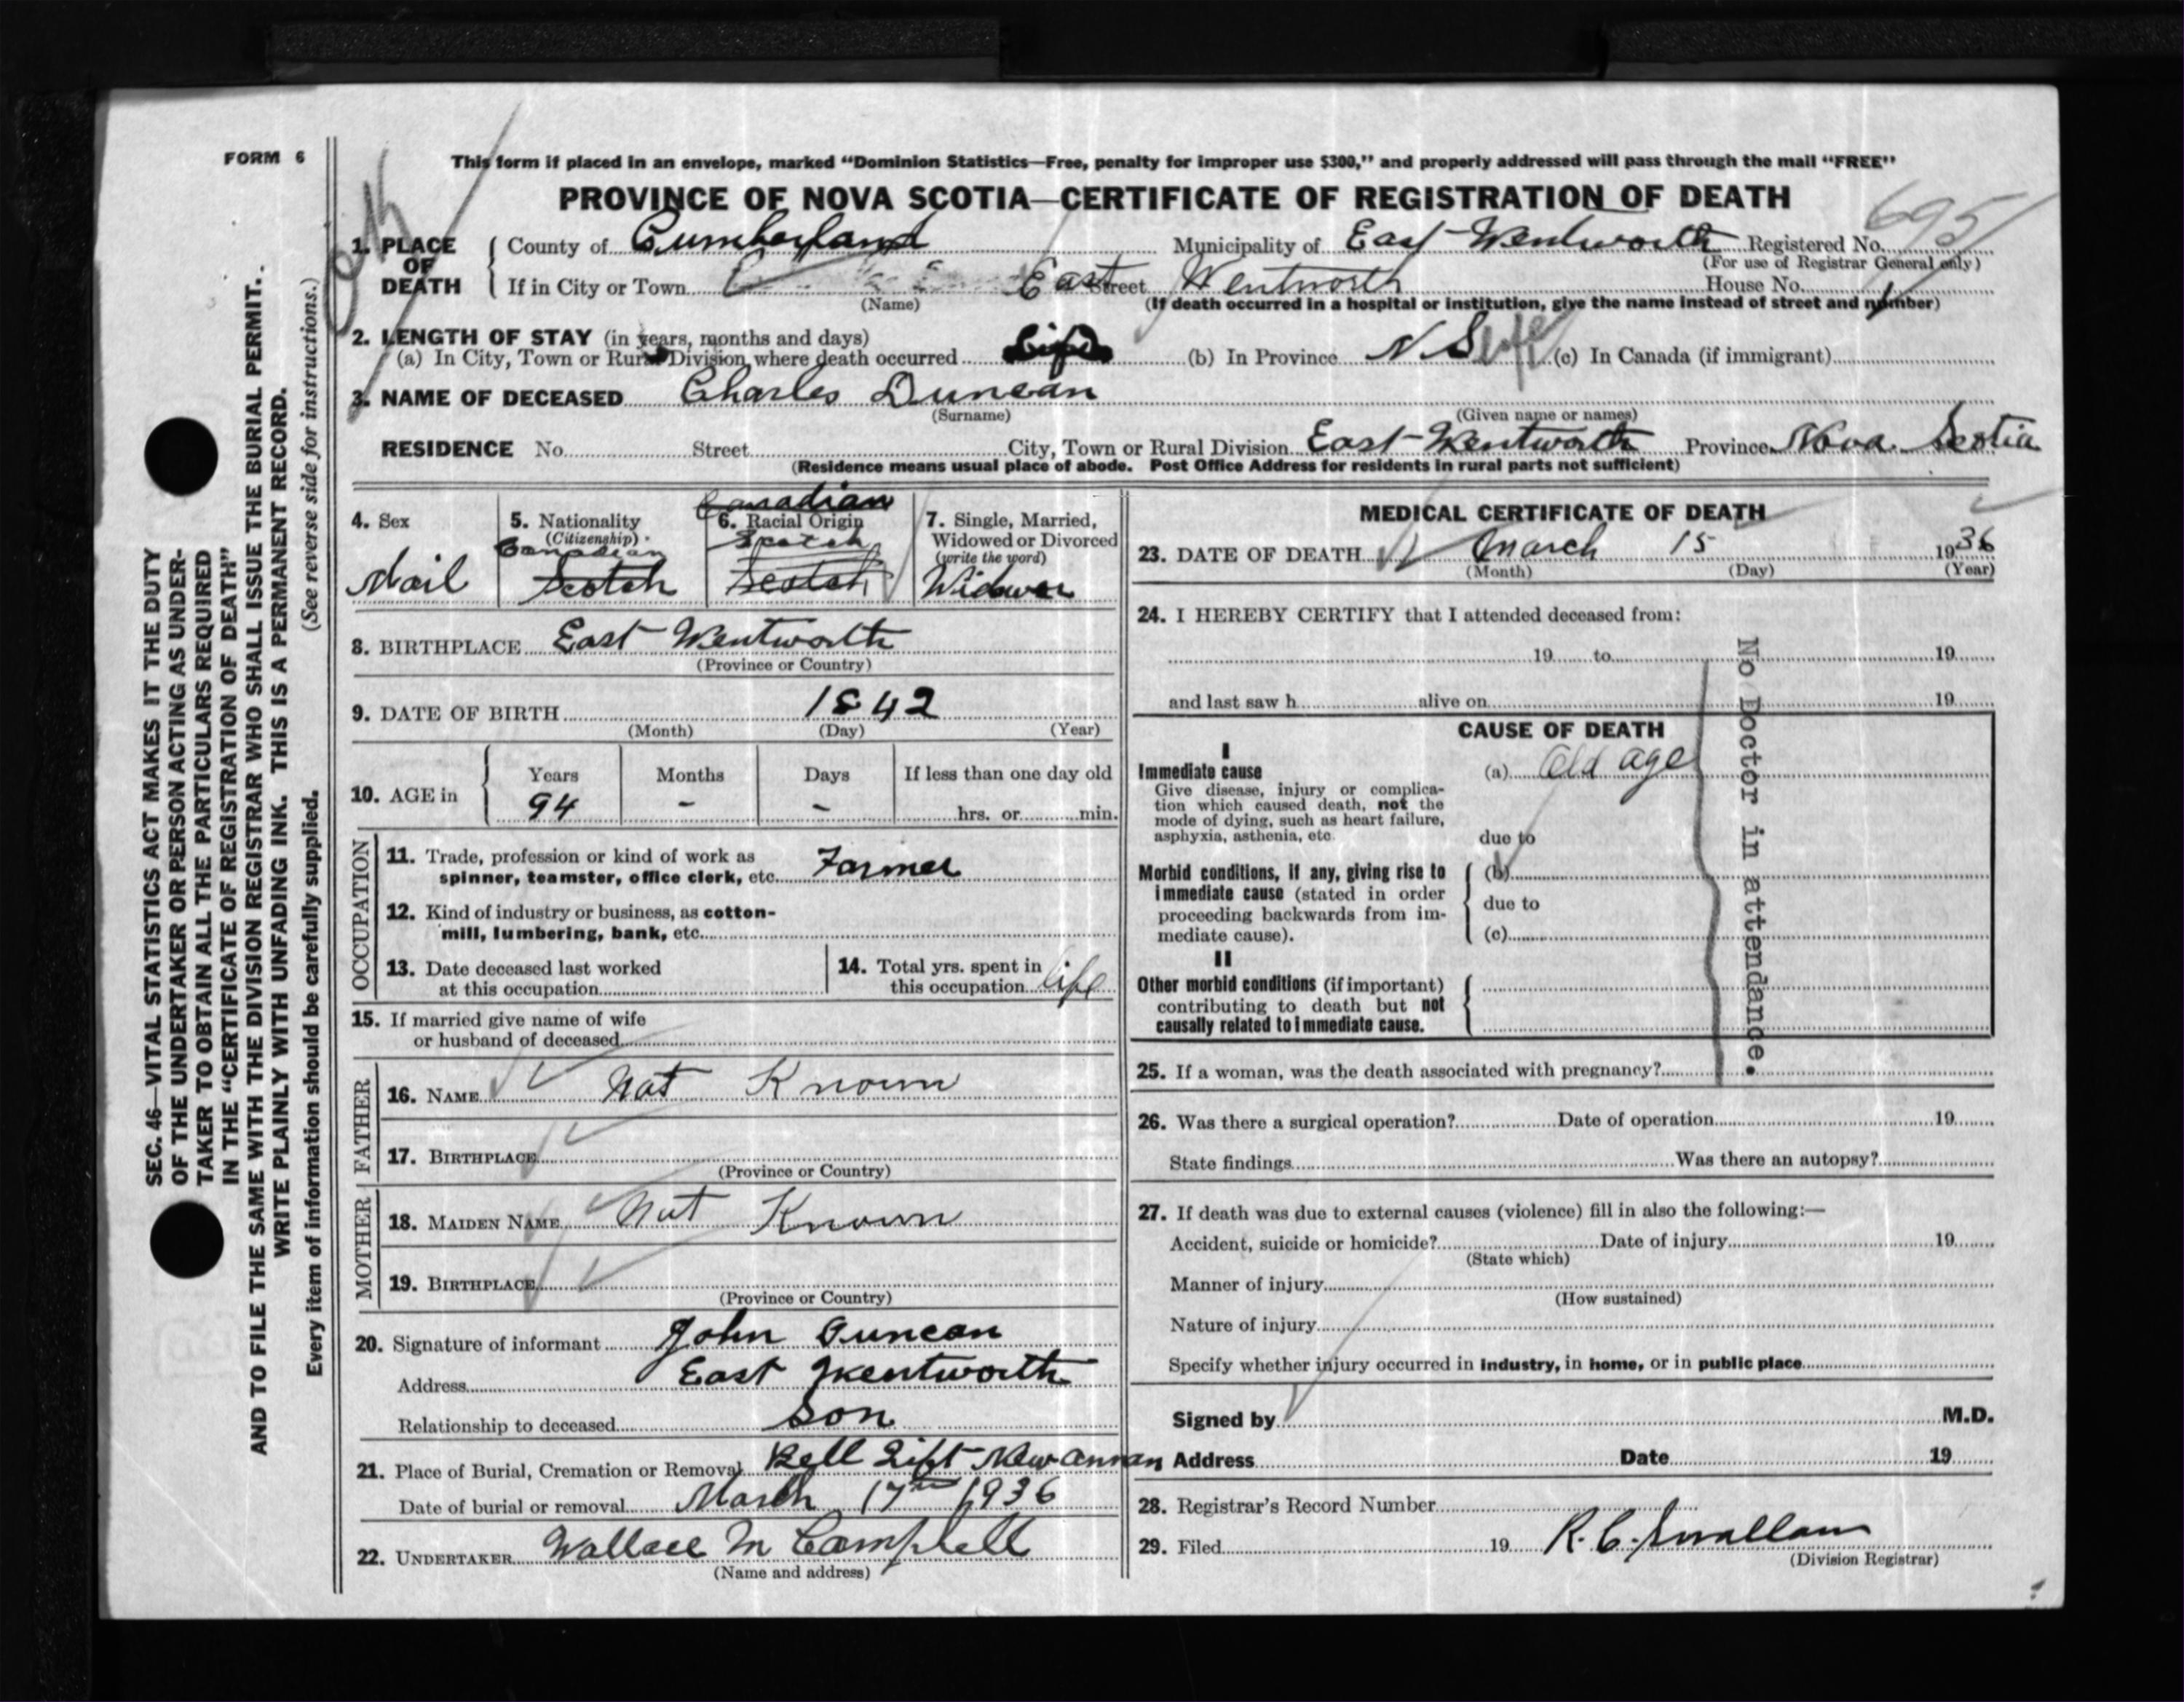 FORM 6
This form if placed in an envelope, marked “Dominion Statistics—Free, penalty for improper use $300,” and properly addressed will pass through the mail “FREE”
PROVINCE OF NOVA SCOTIA—CERTIFICATE OF REGISTRATION OF DEATH
695
1. PLACE OF DEATH
County of Cumberland Municipality of East Wentworth Registered No.
(For use of Registrar General only)
If in City or Town East Street Wentworth House No.
(Name) (If death occurred in a hospital or institution, give the name instead of street and number)
2. LENGTH OF STAY (in years, months and days)
(a) In City, Town or Rural Division where death occurred Life (b) In Province N S life (c) In Canada (if immigrant)
3. NAME OF DECEASED Charles Duncan
(Surname) (Given name or names)
RESIDENCE No. Street City, Town or Rural Division East Wentworth Province Nova Scotia
(Residence means usual place of abode. Post Office Address for residents in rural parts not sufficient)
4. Sex
Mail
5. Nationality
(Citizenship)
Canadian
Scotch
Canadian
6. Racial Origin
Scotch
Scotch
7. Single, Married,
Widowed or Divorced
(write the word)
Widower
8. BIRTHPLACE East Wentworth
(Province or Country)
9. DATE OF BIRTH 1842
(Month) (Day) (Year)
10. AGE in
Years Months Days If less than one day old
94 - - hrs. or min.
OCCUPATION
11. Trade, profession or kind of work as
spinner, teamster, office clerk, etc. Farmer
12. Kind of industry or business, as cotton-
mill, lumbering, bank, etc.
13. Date deceased last worked
at this occupation
14. Total yrs. spent in
this occupation life
15. If married give name of wife
or husband of deceased
FATHER
16. NAME Not Known
17. BIRTHPLACE
(Province or Country)
MOTHER
18. MAIDEN NAME Not Known
19. BIRTHPLACE
(Province or Country)
20. Signature of informant John Duncan
Address East Wentworth
Relationship to deceased Son
21. Place of Burial, Cremation or Removal Bell Lift New Annan
Date of burial or removal March 17th 1936
22. UNDERTAKER Wallace M Campbell
(Name and address)
MEDICAL CERTIFICATE OF DEATH
23. DATE OF DEATH March 15 1936
(Month) (Day) (Year)
24. I HEREBY CERTIFY that I attended deceased from:
19 to 19
and last saw h alive on 19
CAUSE OF DEATH
I
Immediate cause
Give disease, injury or complica-
tion which caused death, not the
mode of dying, such as heart failure,
asphyxia, asthenia, etc.
(a) Old age
due to
Morbid conditions, if any, giving rise to
immediate cause (stated in order
proceeding backwards from im-
mediate cause).
(b)
due to
(c)
II
Other morbid conditions (if important)
contributing to death but not
causally related to immediate cause.
No Doctor in attendance.
25. If a woman, was the death associated with pregnancy?
26. Was there a surgical operation? Date of operation 19
State findings Was there an autopsy?
27. If death was due to external causes (violence) fill in also the following:—
Accident, suicide or homicide? Date of injury 19
(State which)
Manner of injury
(How sustained)
Nature of injury
Specify whether injury occurred in industry, in home, or in public place
Signed by M.D.
Address Date 19
28. Registrar's Record Number
29. Filed 19 R. C. Smallam
(Division Registrar)
SEC. 46—VITAL STATISTICS ACT MAKES IT THE DUTY
OF THE UNDERTAKER OR PERSON ACTING AS UNDER-
TAKER TO OBTAIN ALL THE PARTICULARS REQUIRED
IN THE “CERTIFICATE OF REGISTRATION OF DEATH”
AND TO FILE THE SAME WITH THE DIVISION REGISTRAR WHO SHALL ISSUE THE BURIAL PERMIT.
WRITE PLAINLY WITH UNFADING INK. THIS IS A PERMANENT RECORD.
Every item of information should be carefully supplied. (See reverse side for instructions.)